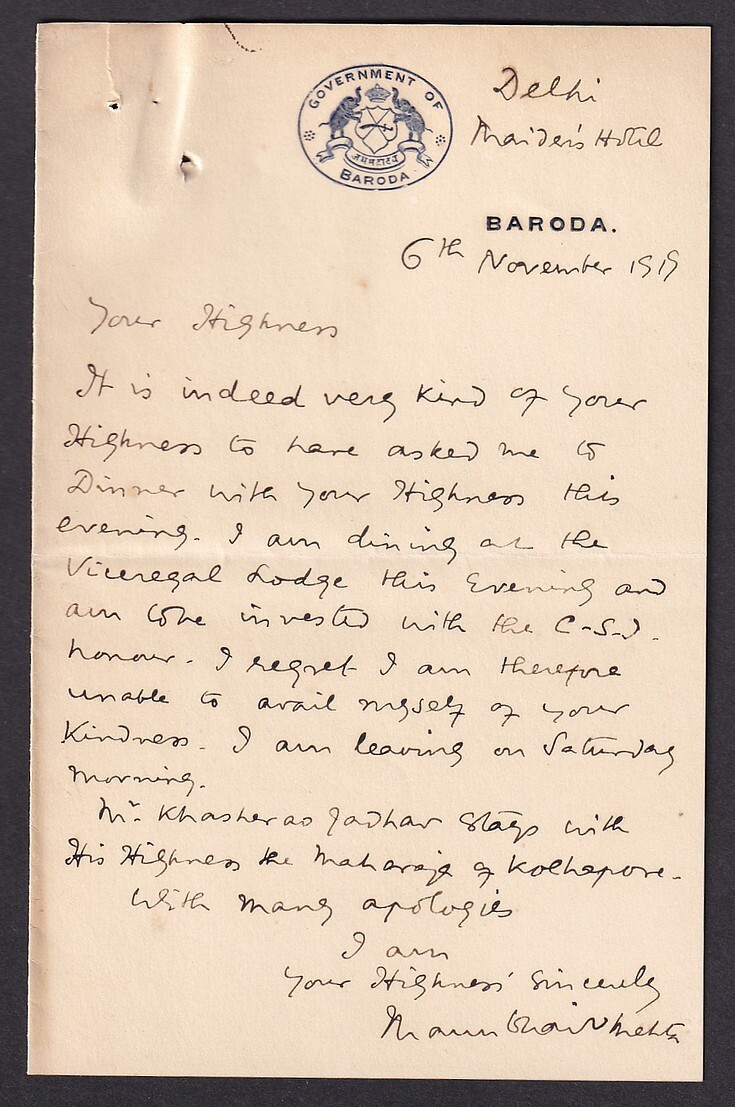 GOVERNMENT OF
BARODA
Delhi
Maiden's Hotel
BARODA.
6th November 1919
Your Highness
It is indeed very kind of your
Highness to have asked me to
Dinner with your Highness this
evening. I am dining at the
Viceregal Lodge this Evening and
am to be invested with the C-S-I.
honour. I regret I am therefore
unable to avail myself of your
Kindness. I am leaving on Saturday
morning.
Mr. Khasherao Jadhav stays with
His Highness the Maharaja of Kolhapore.
With many apologies
I am
Your Highness' Sincerely
Manubhai N Mehta